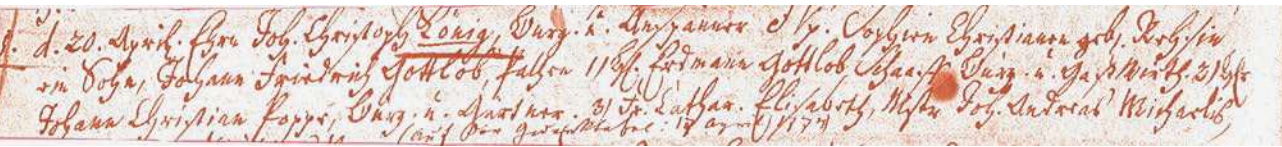 d. 20. April. Ehrn Joh. Christoph König, Burg. u. Anspanner Sophien Christianen geb.
ein Sohn, Johann Friedrich Gottlob, Pathen 1) H. Erdmann Gottlob Schaaff Burg. u. Gastwirth. 2)
Johann Christian Poppe, Burg. u. Gärtner. 3) Fr. Cathar. Elisabeth, Mstr Joh. Andreas Michaelis,